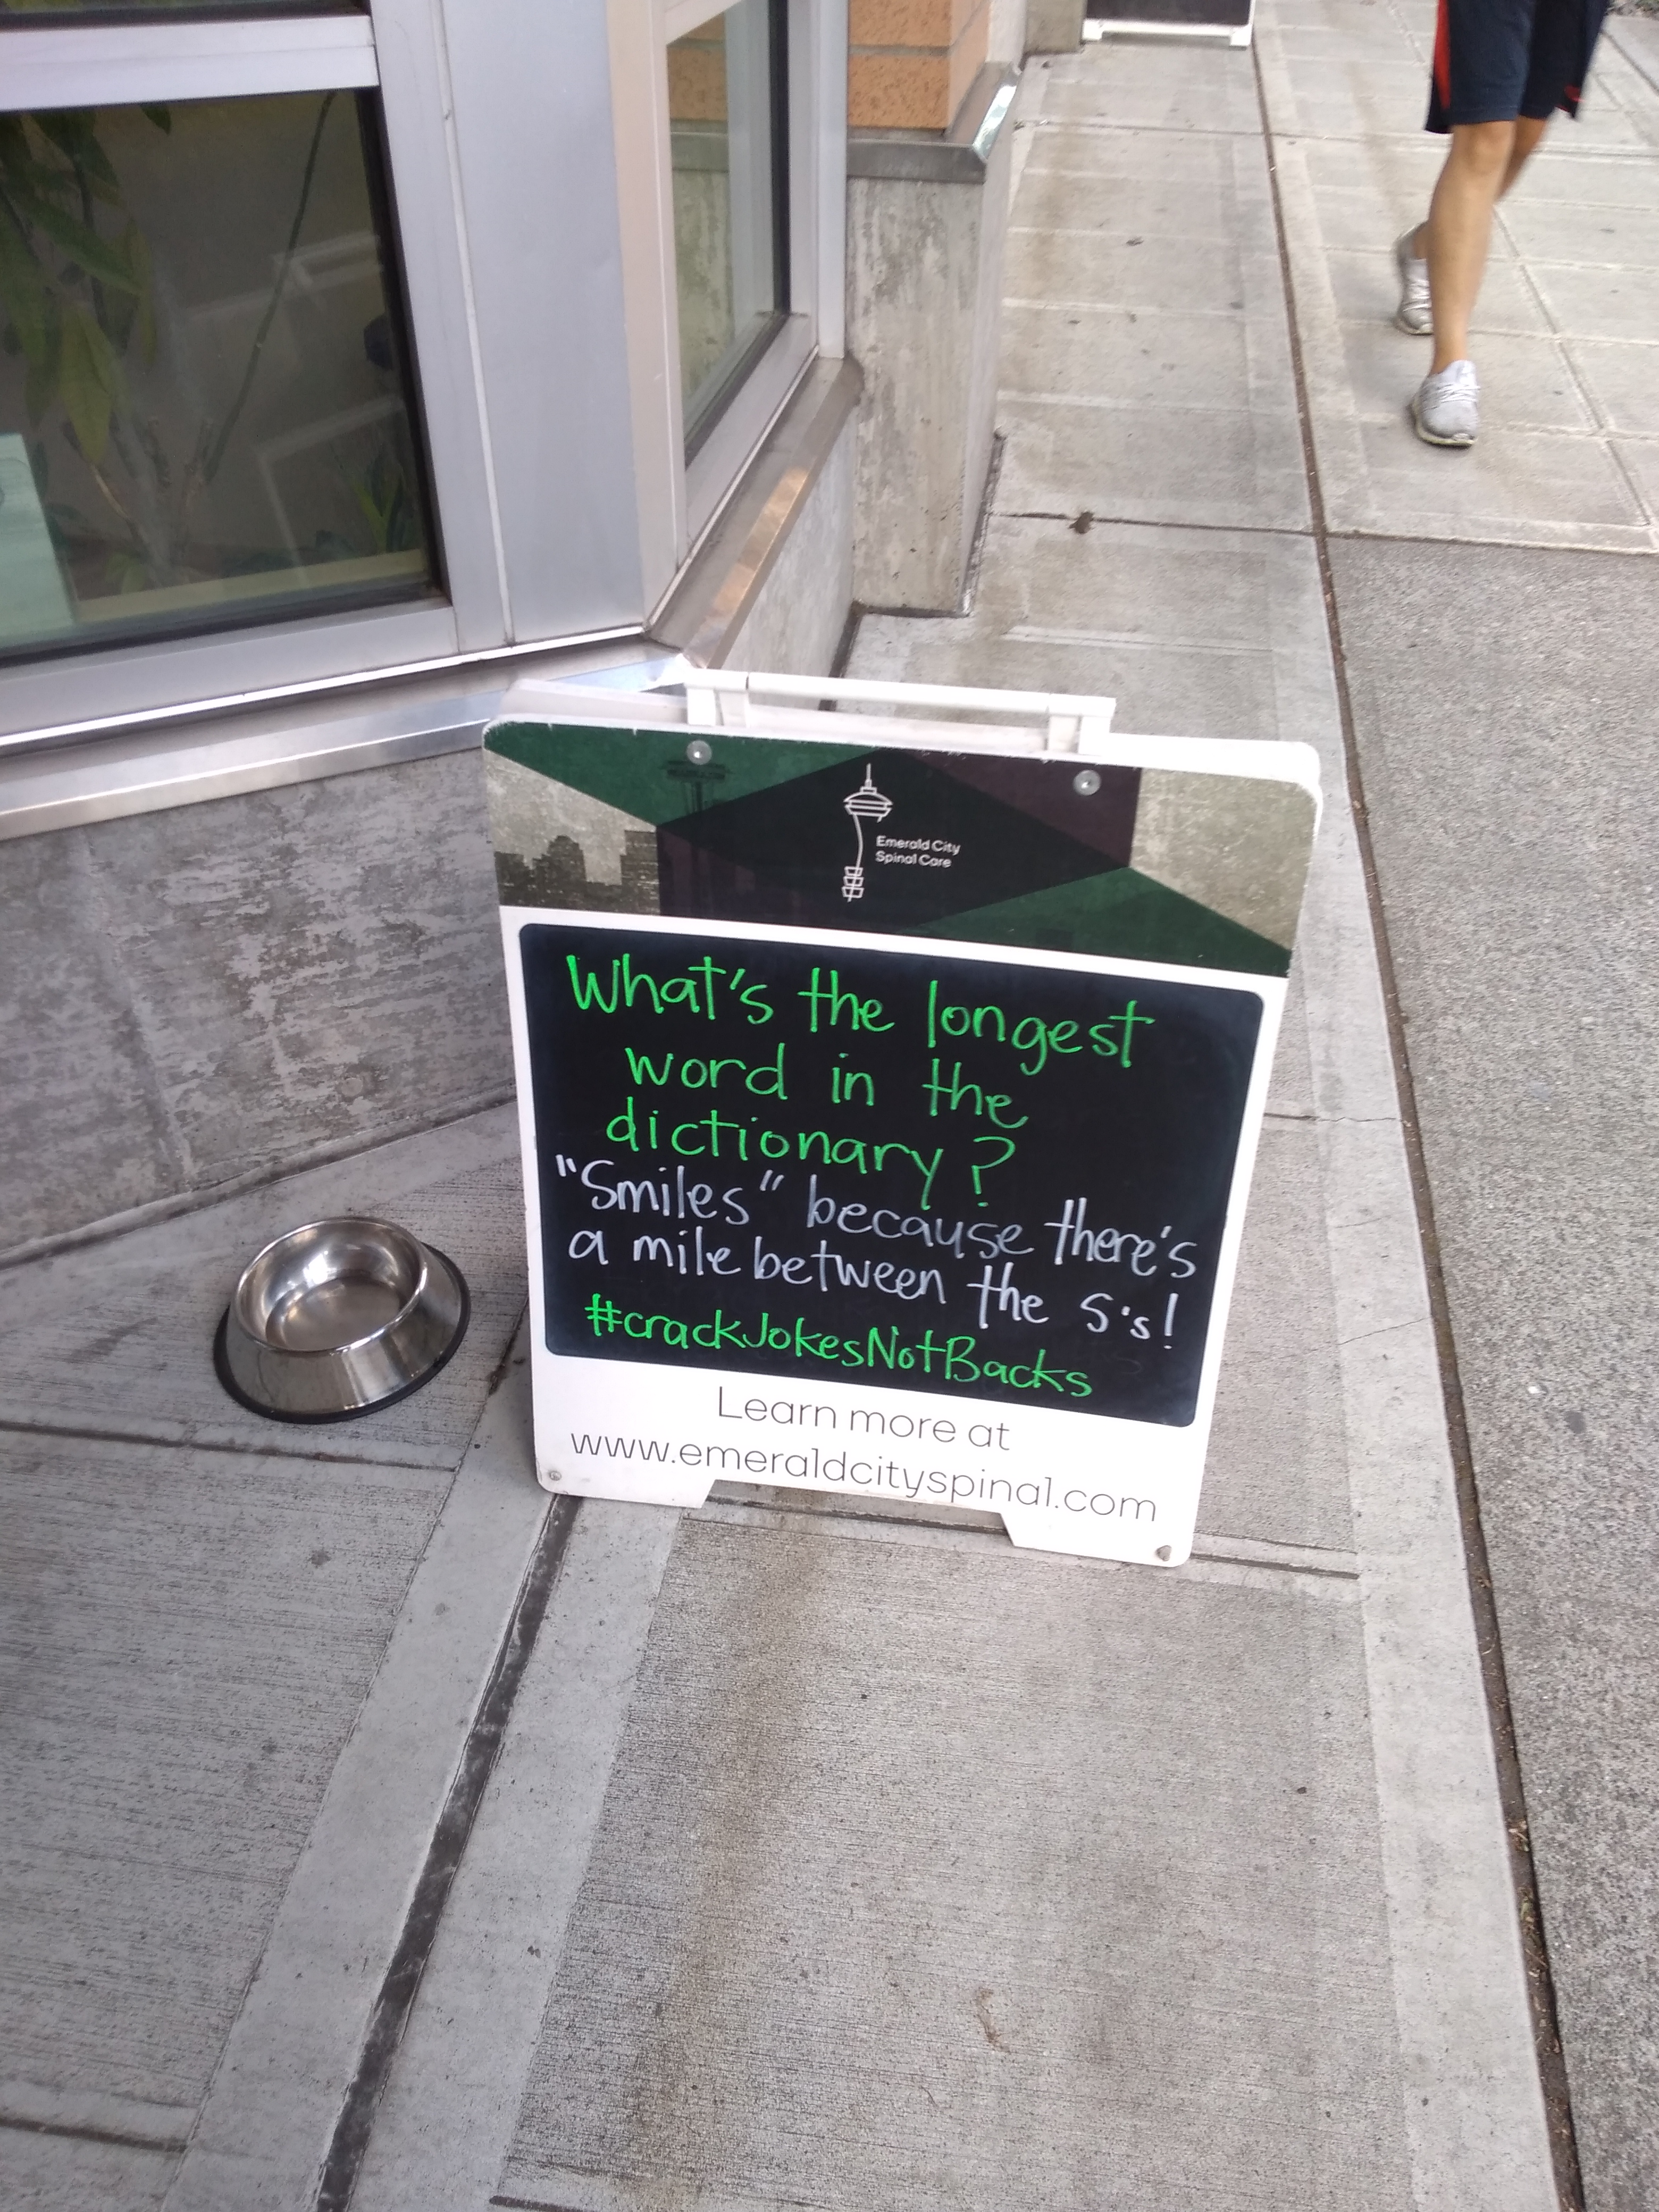 Emerald City
Spinal Care
What's the longest
word in the
dictionary?
"Smiles" because there's
a mile between the S's!
#crackJokesNotBacks
Learn more at
www.emeraldcityspinal.com